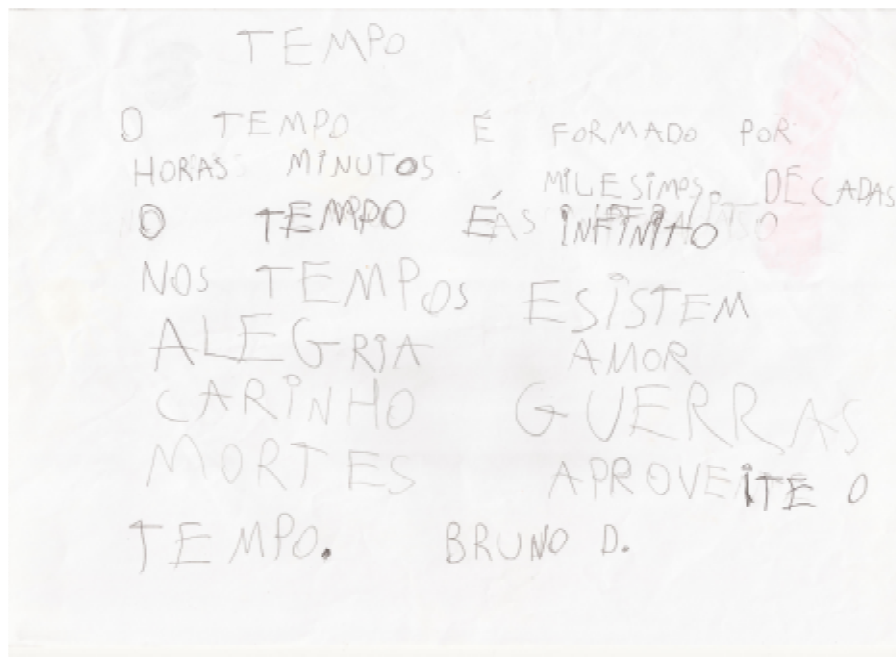 TEMPO
O TEMPO É FORMADO POR
HORAS MINUTOS MILESIMOS DECADAS
O TEMPO É INFINITO
NOS TEMPOS ESISTEM
ALEGRIA AMOR
CARINHO GUERRAS
MORTES APROVEITE O
TEMPO. BRUNO D.